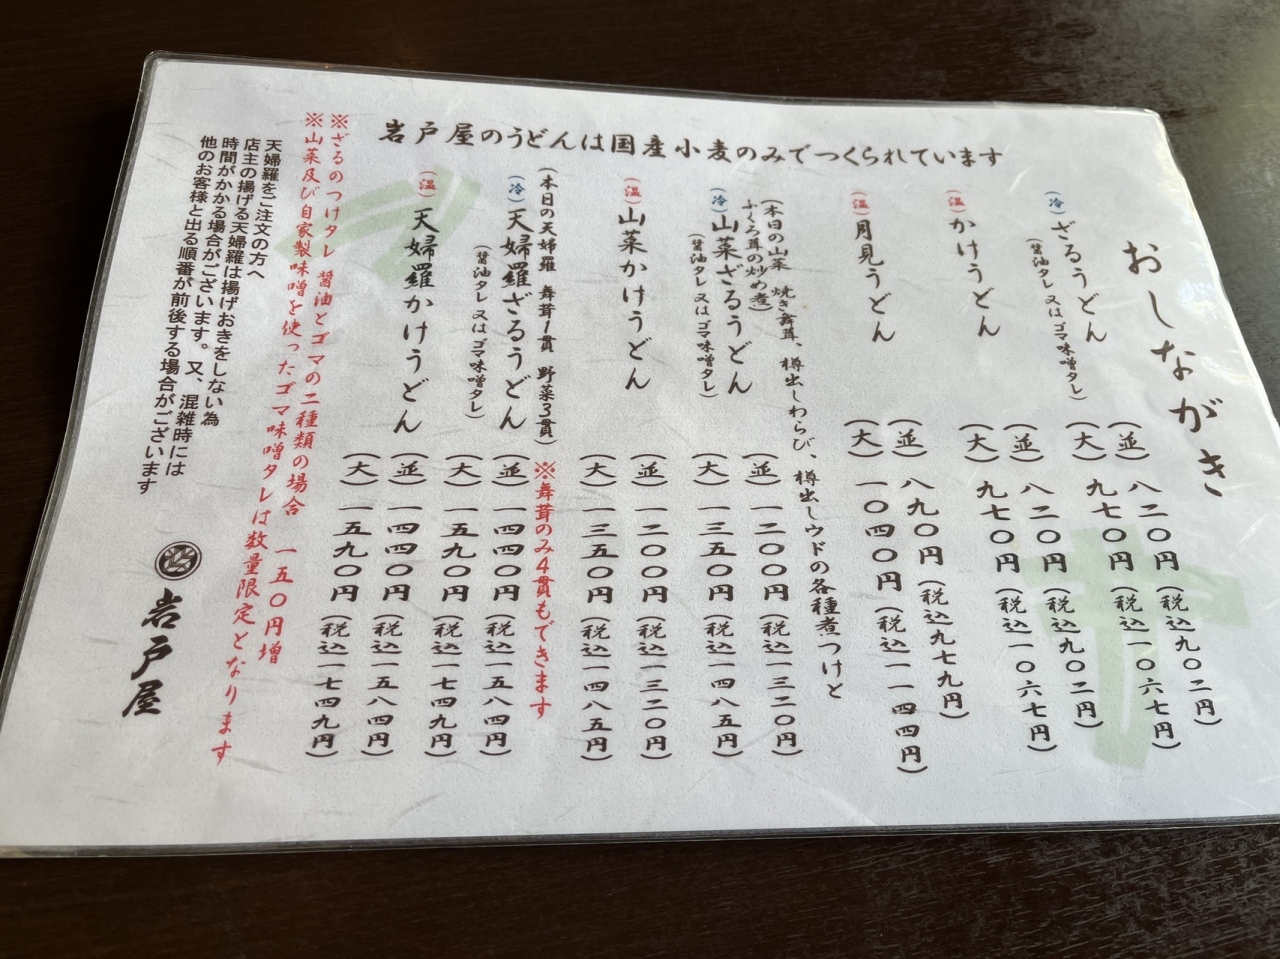 岩戸屋のうどんは国産小麦のみでつくられています
おしながき
(冷) ざるうどん (並) 八二〇円 (税込九〇二円)
(醤油タレ又はゴマ味噌タレ) (大) 九七〇円 (税込一〇六七円)
(温) かけうどん (並) 八二〇円 (税込九〇二円)
(大) 九七〇円 (税込一〇六七円)
(温) 月見うどん (並) 八九〇円 (税込九七九円)
(大) 一〇四〇円 (税込一一四四円)
(本日の山菜 焼き舞茸、樽出しわらび、樽出しウドの各種煮つけと
ふくろ茸の炒め煮)
(冷) 山菜ざるうどん (並) 一二〇〇円 (税込一三二〇円)
(醤油タレ又はゴマ味噌タレ) (大) 一三五〇円 (税込一四八五円)
(温) 山菜かけうどん (並) 一二〇〇円 (税込一三二〇円)
(大) 一三五〇円 (税込一四八五円)
(本日の天婦羅 舞茸1貫 野菜3貫) ※舞茸のみ4貫もできます
(冷) 天婦羅ざるうどん (並) 一四四〇円 (税込一五八四円)
(醤油タレ又はゴマ味噌タレ) (大) 一五九〇円 (税込一七四九円)
(温) 天婦羅かけうどん (並) 一四四〇円 (税込一五八四円)
(大) 一五九〇円 (税込一七四九円)
※ざるのつけタレ 醤油とゴマの二種類の場合 一五〇円増
※山菜及び自家製味噌を使ったゴマ味噌タレは数量限定となります
天婦羅をご注文の方へ
店主の揚げる天婦羅は揚げおきをしない為
時間がかかる場合がございます。又、混雑時には
他のお客様と出る順番が前後する場合がございます
岩戸屋